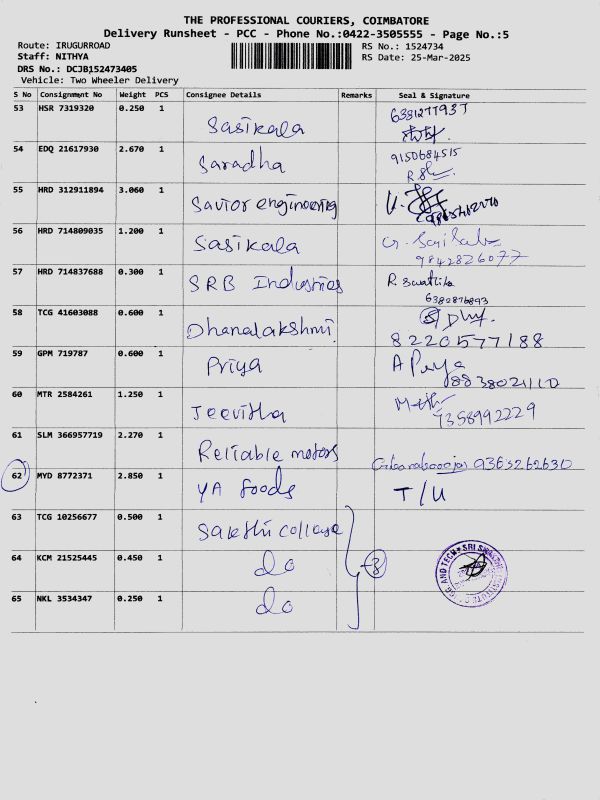 THE PROFESSIONAL COURIERS, COIMBATORE
Delivery Runsheet - PCC - Phone No.:0422-3505555 - Page No.:5
Route: IRUGURROAD
Staff: NITHYA
DRS No.: DCJB152473405
Vehicle: Two Wheeler Delivery
RS No.: 1524734
RS Date: 25-Mar-2025
S No Consignment No Weight PCS Consignee Details Remarks Seal & Signature
53 HSR 7319320 0.250 1 Sasikala 6381277937
54 EDQ 21617930 2.670 1 Saradha 9150684515
55 HRD 312911894 3.060 1 Savior engineering
56 HRD 714809035 1.200 1 Sasikala 9842826077
57 HRD 714837688 0.300 1 SRB Industries R. Swathika
6382876893
58 TCG 41603088 0.600 1 Dhanalakshmi 8220577188
59 GPM 719787 0.600 1 Priya A Priya
8838021110
60 MTR 2584261 1.250 1 Jeevitha 9358992229
61 SLM 366957719 2.270 1 Reliable motors 9365262630
62 MYD 8772371 2.850 1 YA foods T/U
63 TCG 10256677 0.500 1 Sakthi college
64 KCM 21525445 0.450 1 do 3
65 NKL 3534347 0.250 1 do